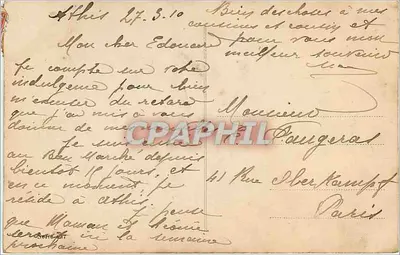 Athis 27.3.10
Mon cher Edouard
Je compte sur votre
indulgence pour bien
m'excuser du retard
que j'ai mis à vous
donner de mes
Je suis
au Bon Marché depuis
bientôt 15 jours, et
en ce moment, je
réside à Athis.
Je pense
que Maman et
seront ici la semaine
prochaine
Bien des choses à mes
cousines et cousin et
pour vous mon
meilleur souvenir
CPAPHIL
Monsieur
E. Daugeras
41 Rue Oberkampf
Paris